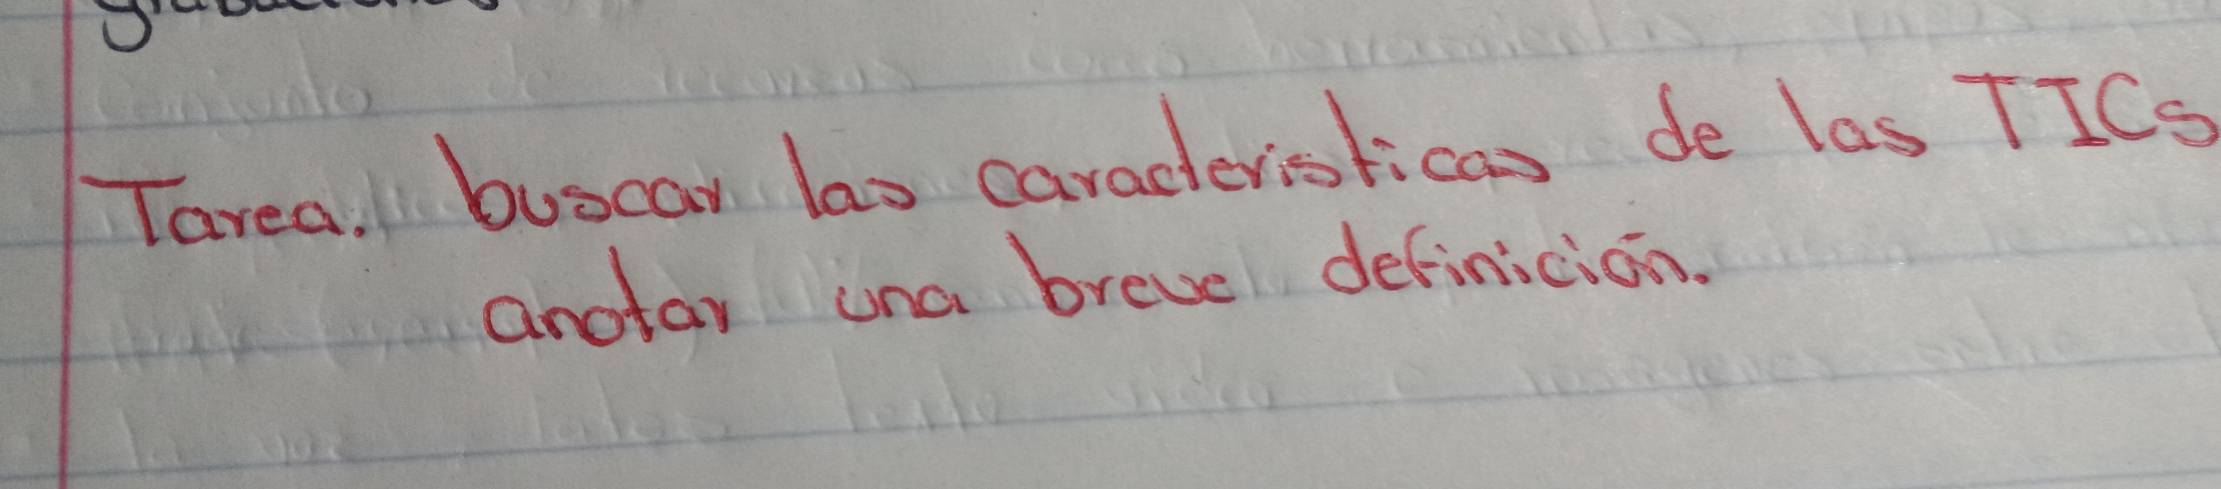 Tarea. buscar las caracteristicas de las TICs
anotar una breve definición.